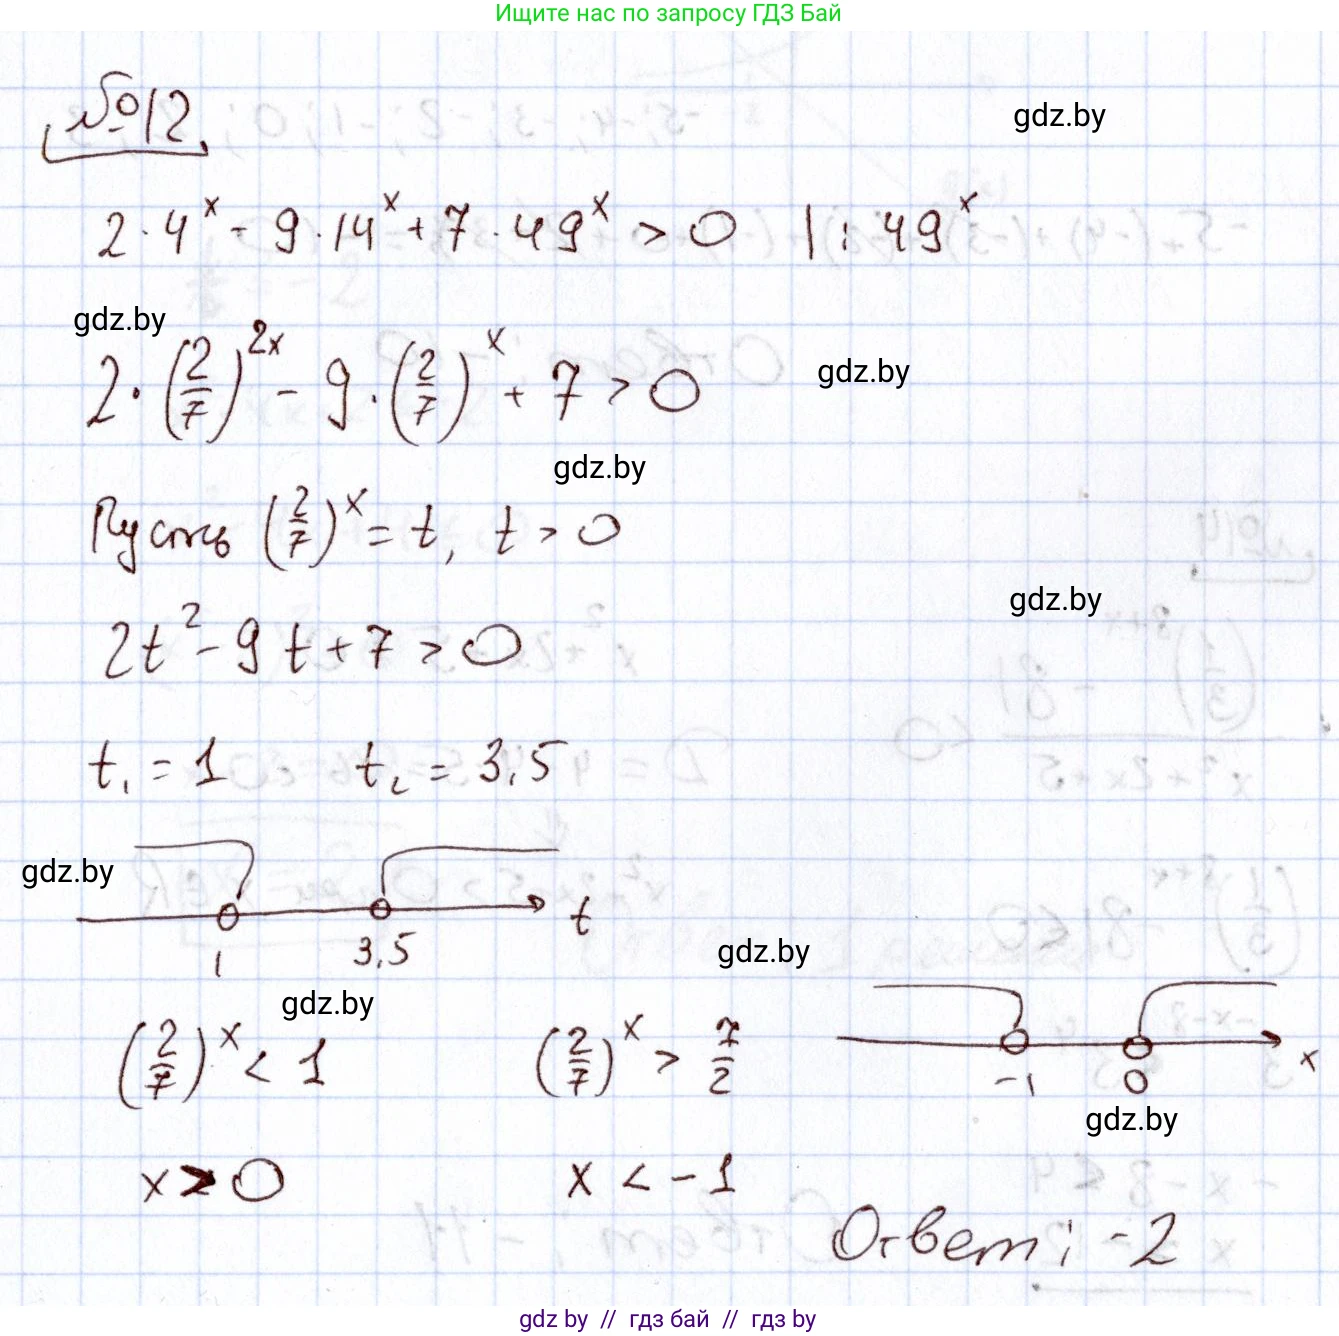 Ищите нас по запросу ГДЗ Бай
№12
gdz.by
2·4^x - 9·14^x + 7·49^x > 0 |:49^x
gdz.by
2·(2/7)^2x - 9·(2/7)^x + 7 > 0
gdz.by
gdz.by
Пусть (2/7)^x = t, t > 0
gdz.by
2t² - 9t + 7 > 0
t₁ = 1 t₂ = 3,5
gdz.by
t
1 3,5
gdz.by
gdz.by
(2/7)^x < 1 (2/7)^x > 7/2
-1 0 x
gdz.by
x > 0 x < -1
Ответ: -2
gdz by // гдз бай // gdz by